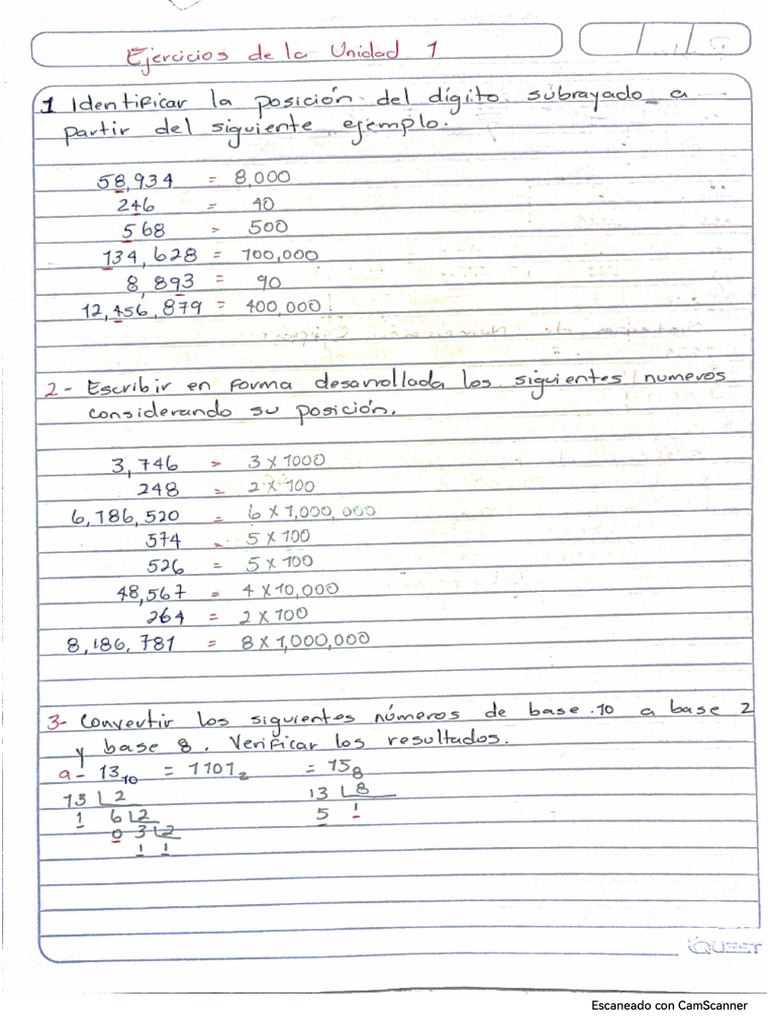 Ejercicios de la Unidad 1
1 Identificar la posición del dígito subrayado a
partir del siguiente ejemplo.
58,934 = 8,000
246 = 40
568 = 500
134,628 = 100,000
8,893 = 90
12,456,879 = 400,000
2- Escribir en forma desarrollada los siguientes numeros
considerando su posición.
3,746 = 3 x 1000
248 = 2 x 100
6,186,520 = 6 x 1,000,000
574 = 5 x 100
526 = 5 x 100
48,567 = 4 x 10,000
264 = 2 x 100
8,186,781 = 8 x 1,000,000
3- Convertir los siguientes números de base 10 a base 2
y base 8. Verificar los resultados.
a- 13₁₀ = 1101₂ = 15₈
13 2 13 8
1 6 2 5 1
0 3 2
1 1
QUEST
Escaneado con CamScanner